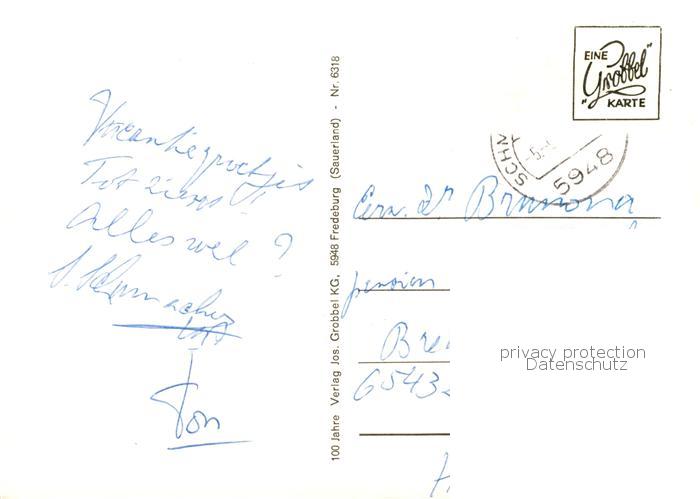 Vacantiegroetjes
Tot ziens
Alles wel ?
S. Schumacher
Ton
100 Jahre Verlag Jos. Grobbel KG, 5948 Fredeburg (Sauerland) - Nr. 6318
EINE
"Grobbel"
KARTE
SCHM
-5.-
5948
Eerw. Zr Brunona
pension
Bre
6543
H
privacy protection
Datenschutz